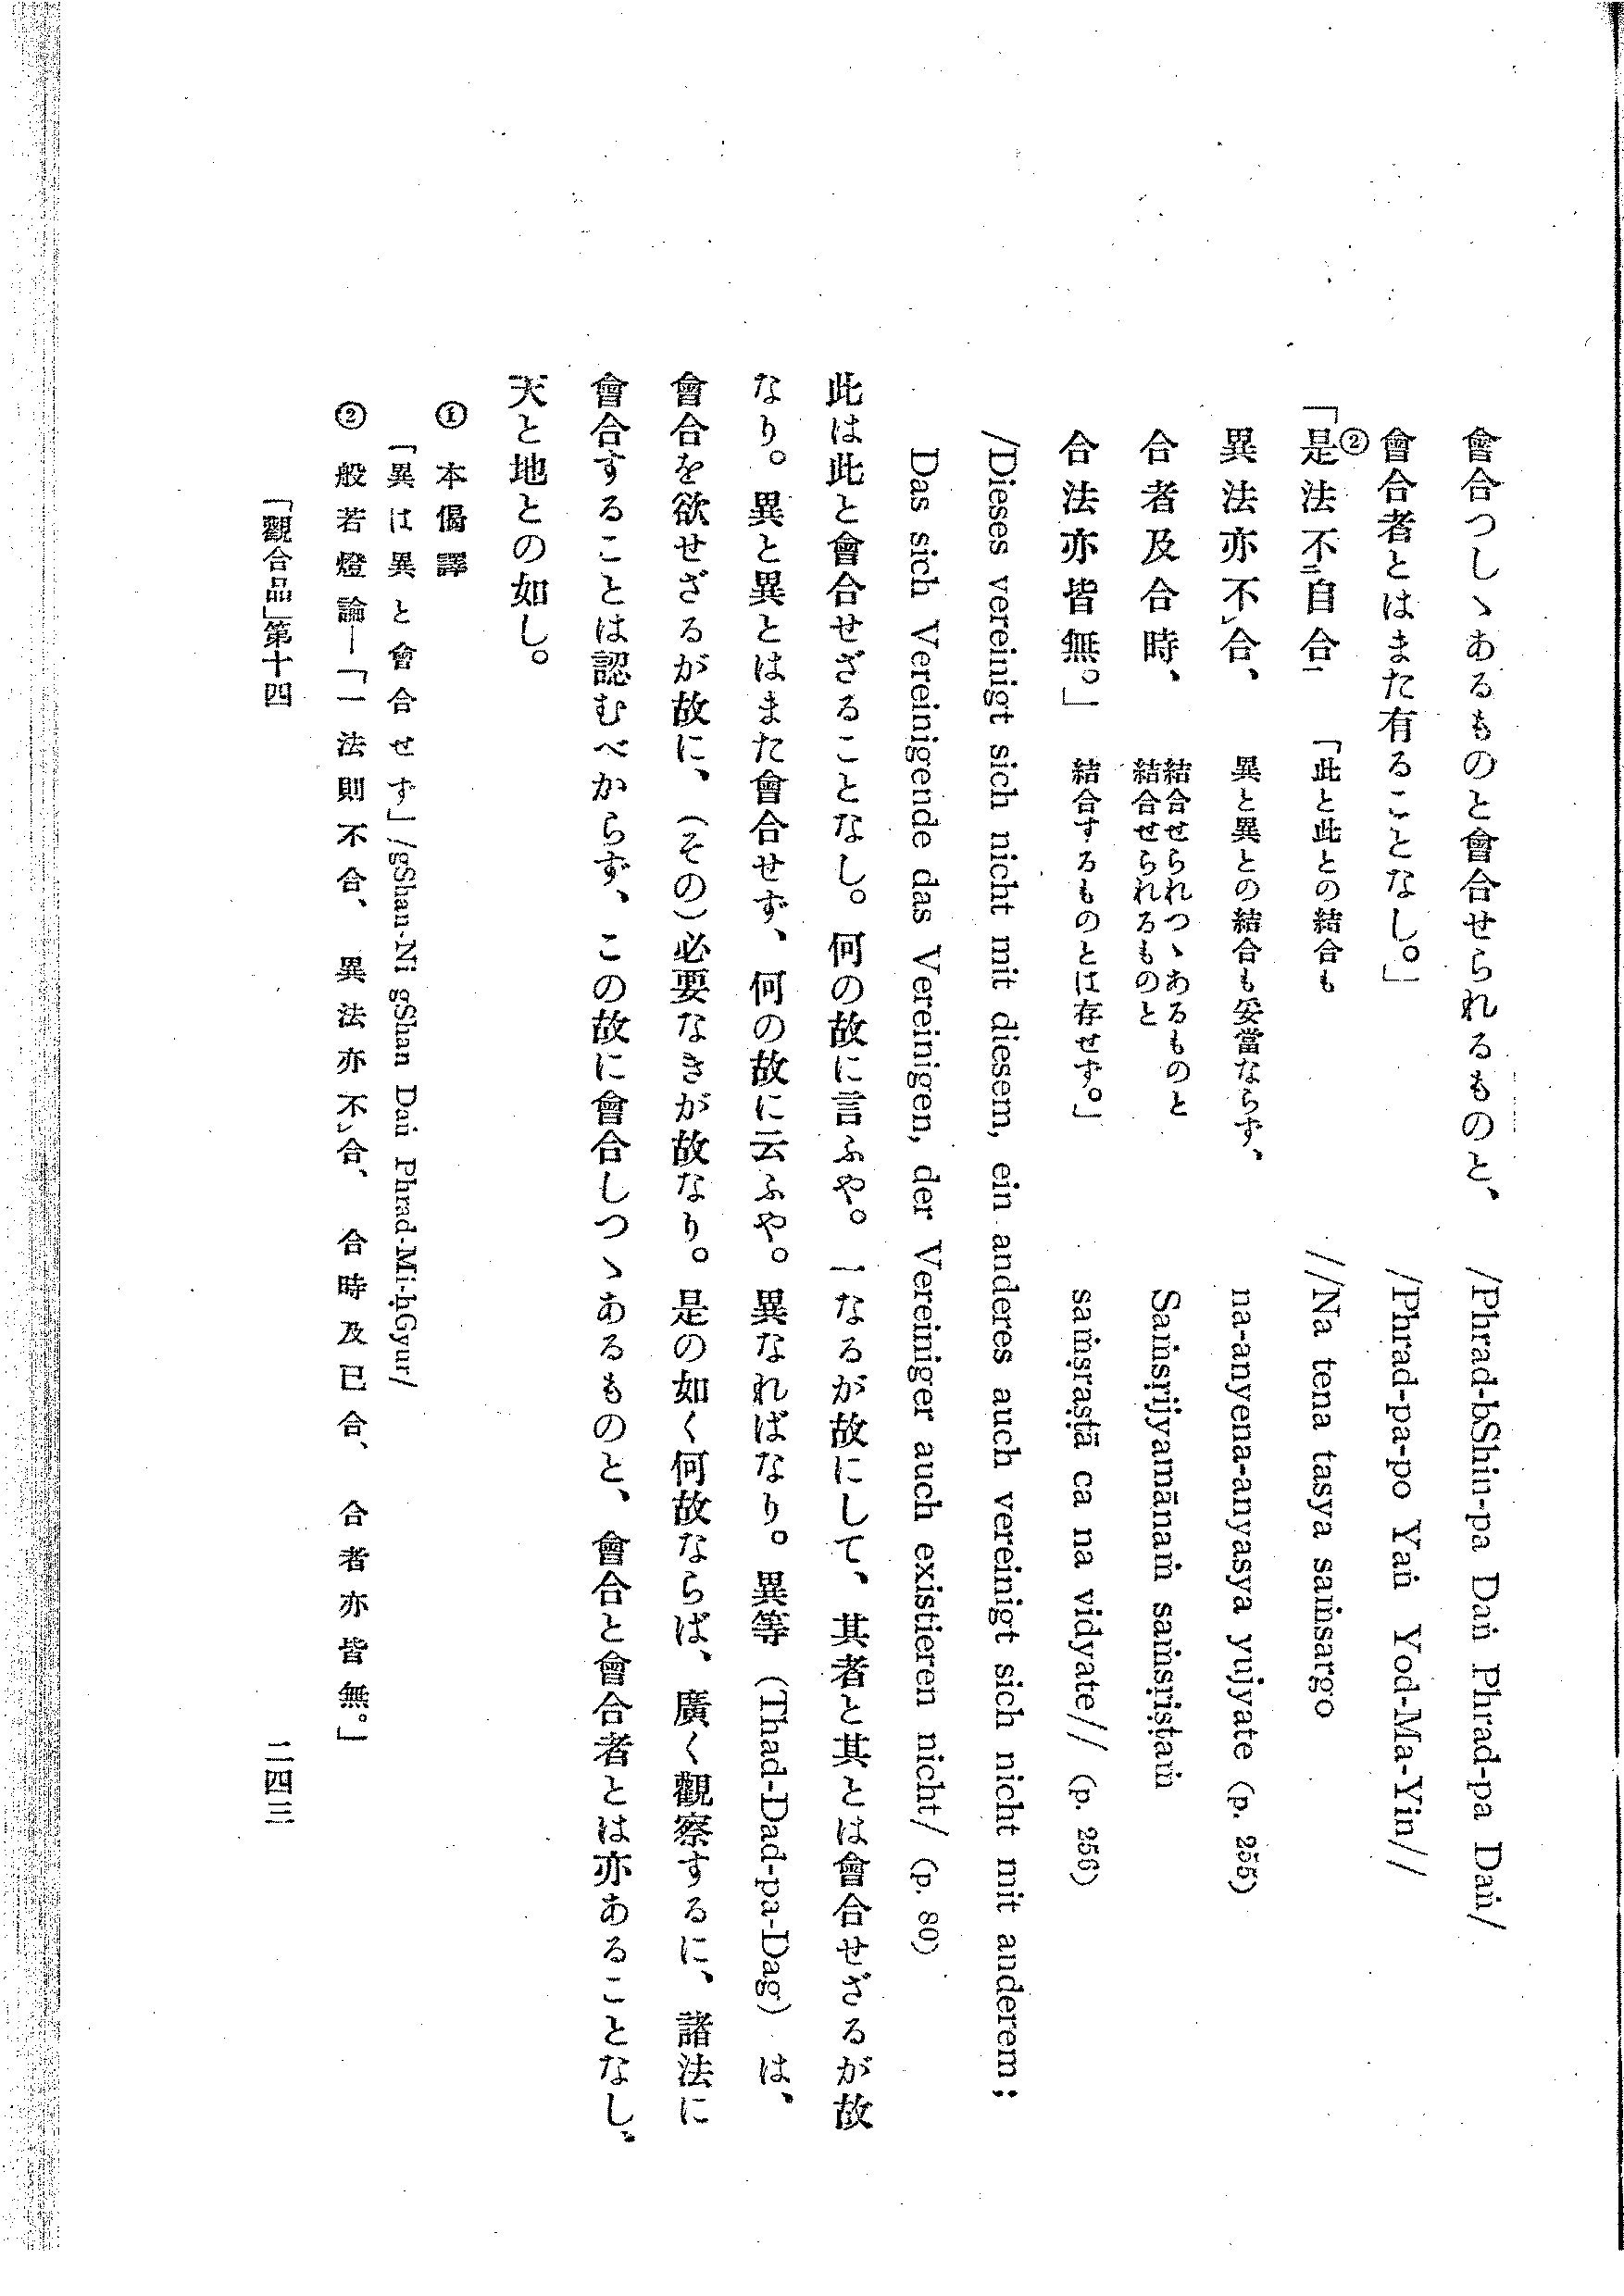 會合つしゝあるものと會合せられるものと、 /Phrad-bShin-pa Daṅ Phrad-pa Daṅ/
會合者とはまた有ることなし。」 /Phrad-pa-po Yaṅ Yod-Ma-Yin//
②「是法不二自合一 「此と此との結合も //Na tena tasya saṁsargo
異法亦不レ合、 異と異との結合も妥當ならず、 na-anyena-anyasya yujyate (p. 255)
合者及合時、 結合せられつゝあるものと結合せられるものと Saṁsṛijyamānaṁ saṁsṛiṣṭaṁ
合法亦皆無。」 結合するものとは存せず。」 saṁṣraṣṭā ca na vidyate// (p. 256)
/Dieses vereinigt sich nicht mit diesem, ein anderes auch vereinigt sich nicht mit anderem;
Das sich Vereinigende das Vereinigen, der Vereiniger auch existieren nicht/ (p. 80)
此は此と會合せざることなし。何の故に言ふや。一なるが故にして、其者と其とは會合せざるが故
なり。異と異とはまた會合せず、何の故に云ふや。異なればなり。異等 (Thad-Dad-pa-Dag) は、
會合を欲せざるが故に、(その)必要なきが故なり。是の如く何故ならば、廣く觀察するに、諸法に
會合することは認むべからず、この故に會合しつゝあるものと、會合と會合者とは亦あることなし、
天と地との如し。
① 本偈譯
「異は異と會合せず」/gShan-Ni gShan Daṅ Phrad-Mi-ḥGyur/
② 般若燈論―「一法則不合、異法亦不レ合、合時及已合、合者亦皆無。」
「觀合品」第十四 二四三